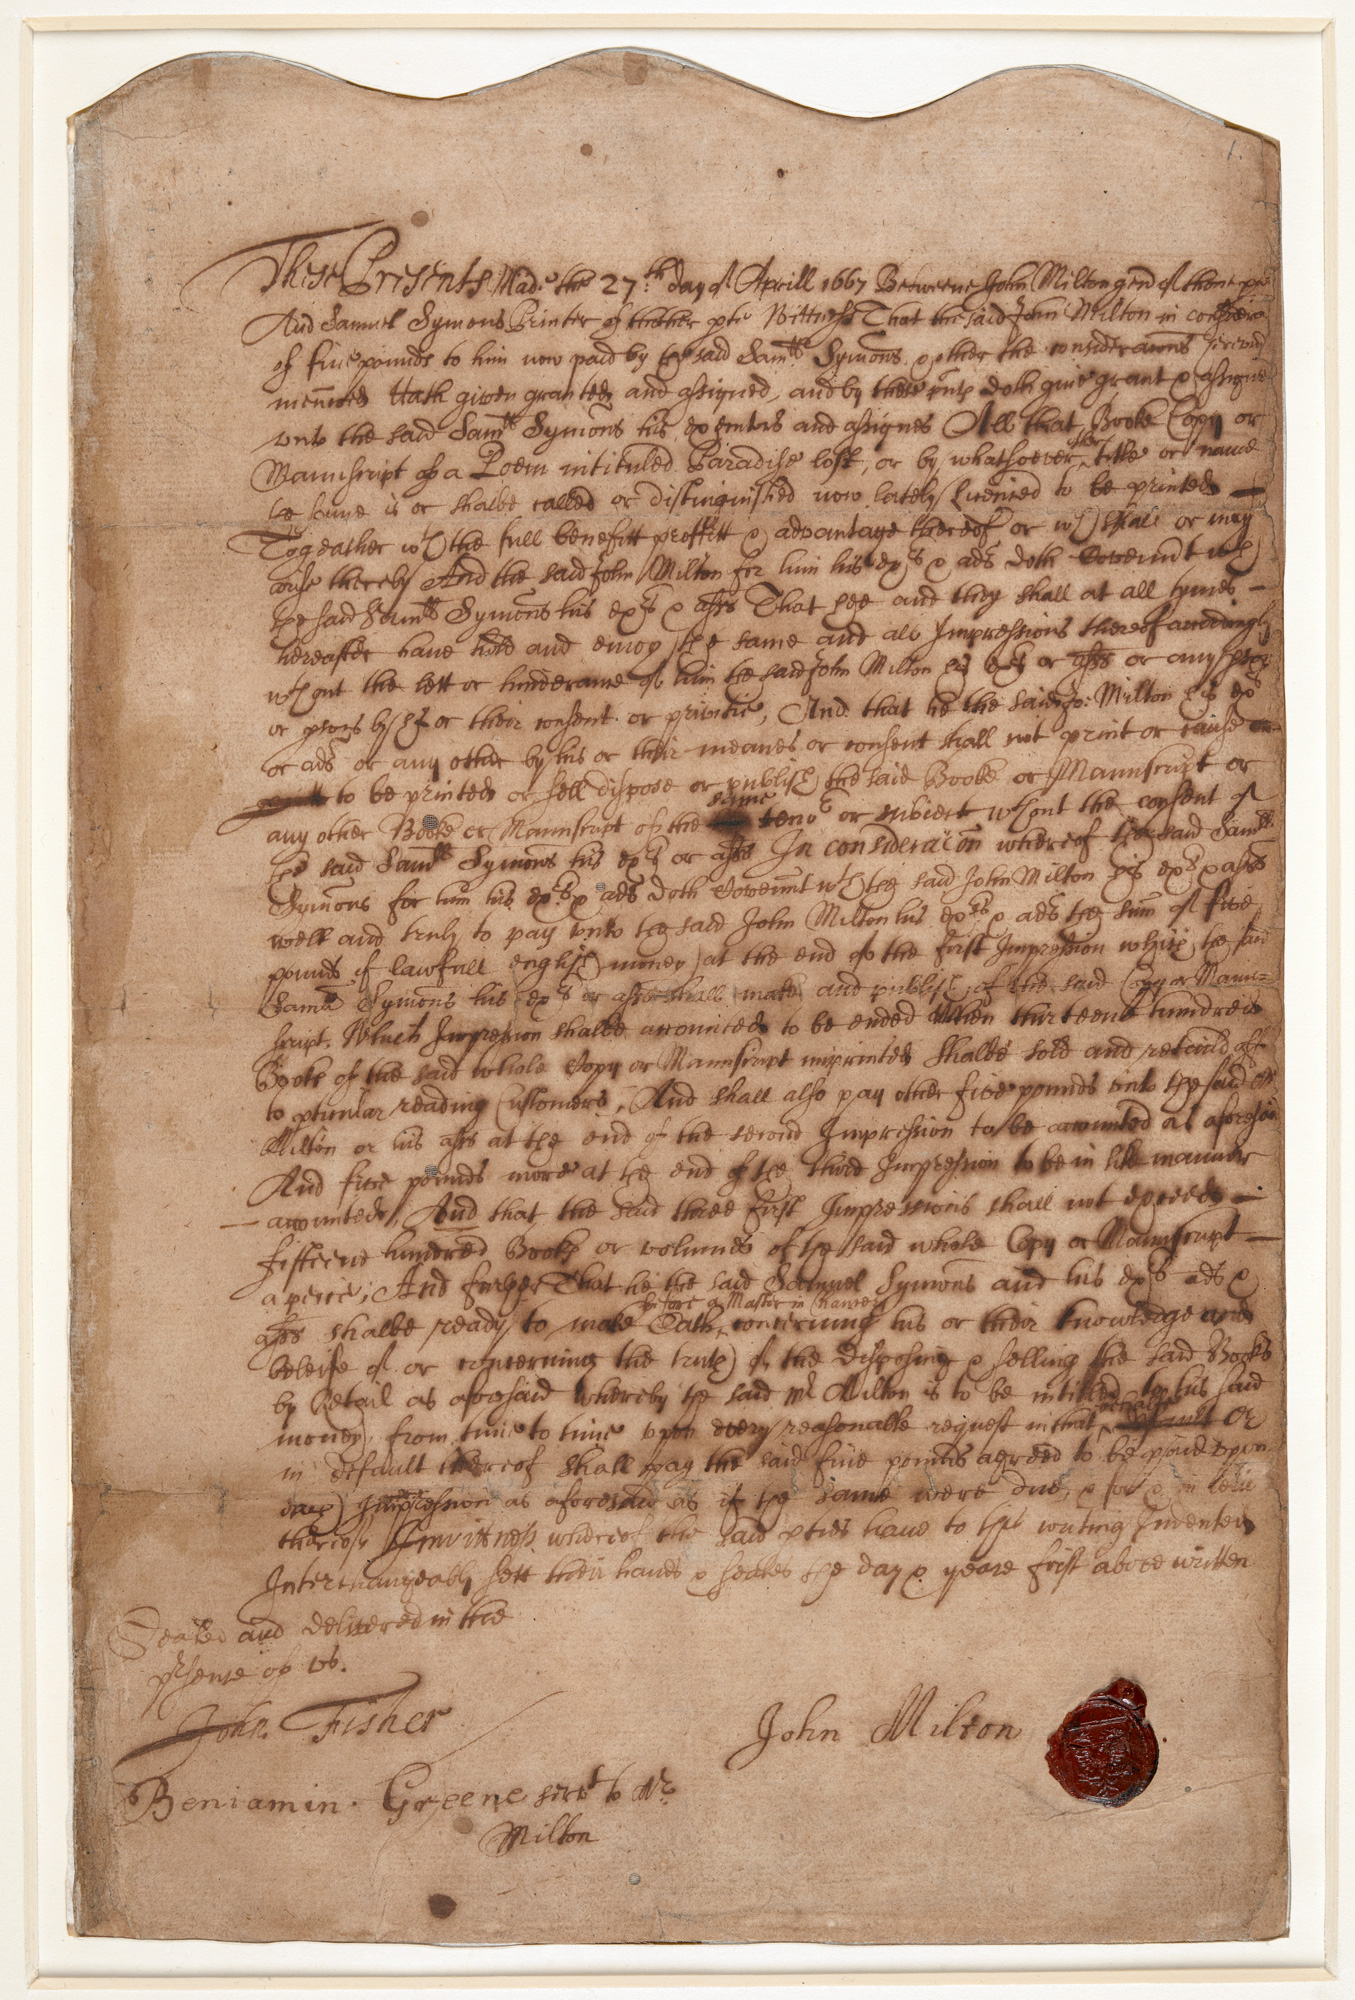 1.
These Presents Made the 27th day of Aprill 1667 Betweene John Milton gent of thone pte
And Samuel Symons Printer of thother pte Wittness That the said John Milton in consideracon
of five pounds to him now paid by the said Samll Symons & other the consideracons herein
menconed Hath given granted and assigned, and by these pnts doth give grant & assigne
unto the said Samll Symons his executors and assignes All that Booke Copy or
Manuscript of a Poem intituled Paradise lost, or by whatsoever other title or name
the same is or shalbe called or distinguished now lately Licensed to be printed
Togeather wth the full benefitt proffitt & advantage thereof or wch shall or may
arise thereby And the said John Milton for him his exrs & ads doth Covennt wth
the said Samll Symons his exrs & asss That hee and they shall at all tymes
hereafter have hold and enioy the same and all Impressions thereof accordingly
wthout the lett or hinderance of him the said John Milton his exrs or asss or any pson
or psons by his or their consent or privitie, And that he the said Jo: Milton his exrs
or ads or any other by his or their meanes or consent shall not print or cause or
to be printed or sell dispose or publish the said Booke or Manuscript or
any other Booke or Manuscript of the same tenor or subiect wthout the consent of
the said Samll Symons his exrs or asss In consideracon whereof the said Samll
Symons for him his exrs & ads doth Covennt wth the said John Milton his exrs & asss
well and truly to pay unto the said John Milton his exrs & ads the sum of five
pounds of lawfull english money at the end of the first Impression which the said
Samll Symons his exrs or asss shall make and publish of the said Copy or Manu=
script. Which Impression shalbe accounted to be ended when thirteene hundred
Books of the said whole Copy or Manuscript imprinted shalbe sold and retaild off
to pticular reading Customers, And shall also pay other five pounds unto the said Mr
Milton or his asss at the end of the second Impression to be accounted as aforesaid
And five pounds more at the end of the third Impression to be in like manner
accounted, And that the said three first Impressions shall not exceede
fifteene hundred Books or volumes of the said whole Copy or Manuscript
a peice; And further That he the said Samuel Symons and his exrs ads &
asss shalbe ready to make Oath before a Master in Chancery concerning his or their knowledge and
beleife of or concerning the truth of the disposing & selling the said Books
by Retail as aforesaid whereby the said Mr Milton is to be intitled to his said
money from time to time upon every reasonable request in that behalfe default or
in default thereof shall pay the said five pounds agreed to be paid upon
each Impression as aforesaid as if the same were due, & for & in lieu
thereof In wittness whereof the said pties have to this writing Indented
Interchangeably sett their hands & seales the day & yeare first above written
Sealed and delivered in the
prsence of us.
John Fisher
John Milton
Beniamin Greene servt to Mr
Milton